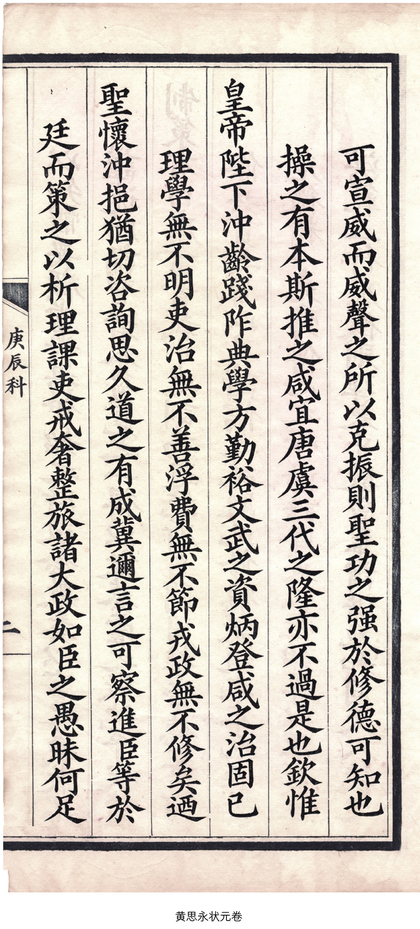 可宣威而威聲之所以克振則聖功之强於修德可知也
操之有本斯推之咸宜唐虞三代之隆亦不過是也欽惟
皇帝陛下沖齡踐阼典學方勤裕文武之資炳登咸之治固已
理學無不明吏治無不善浮費無不節戎政無不修矣迺
聖懷沖挹猶切咨詢思久道之有成冀邇言之可察進臣等於
廷而策之以析理課吏戒奢整旅諸大政如臣之愚昧何足
庚辰科
二
黄思永状元卷